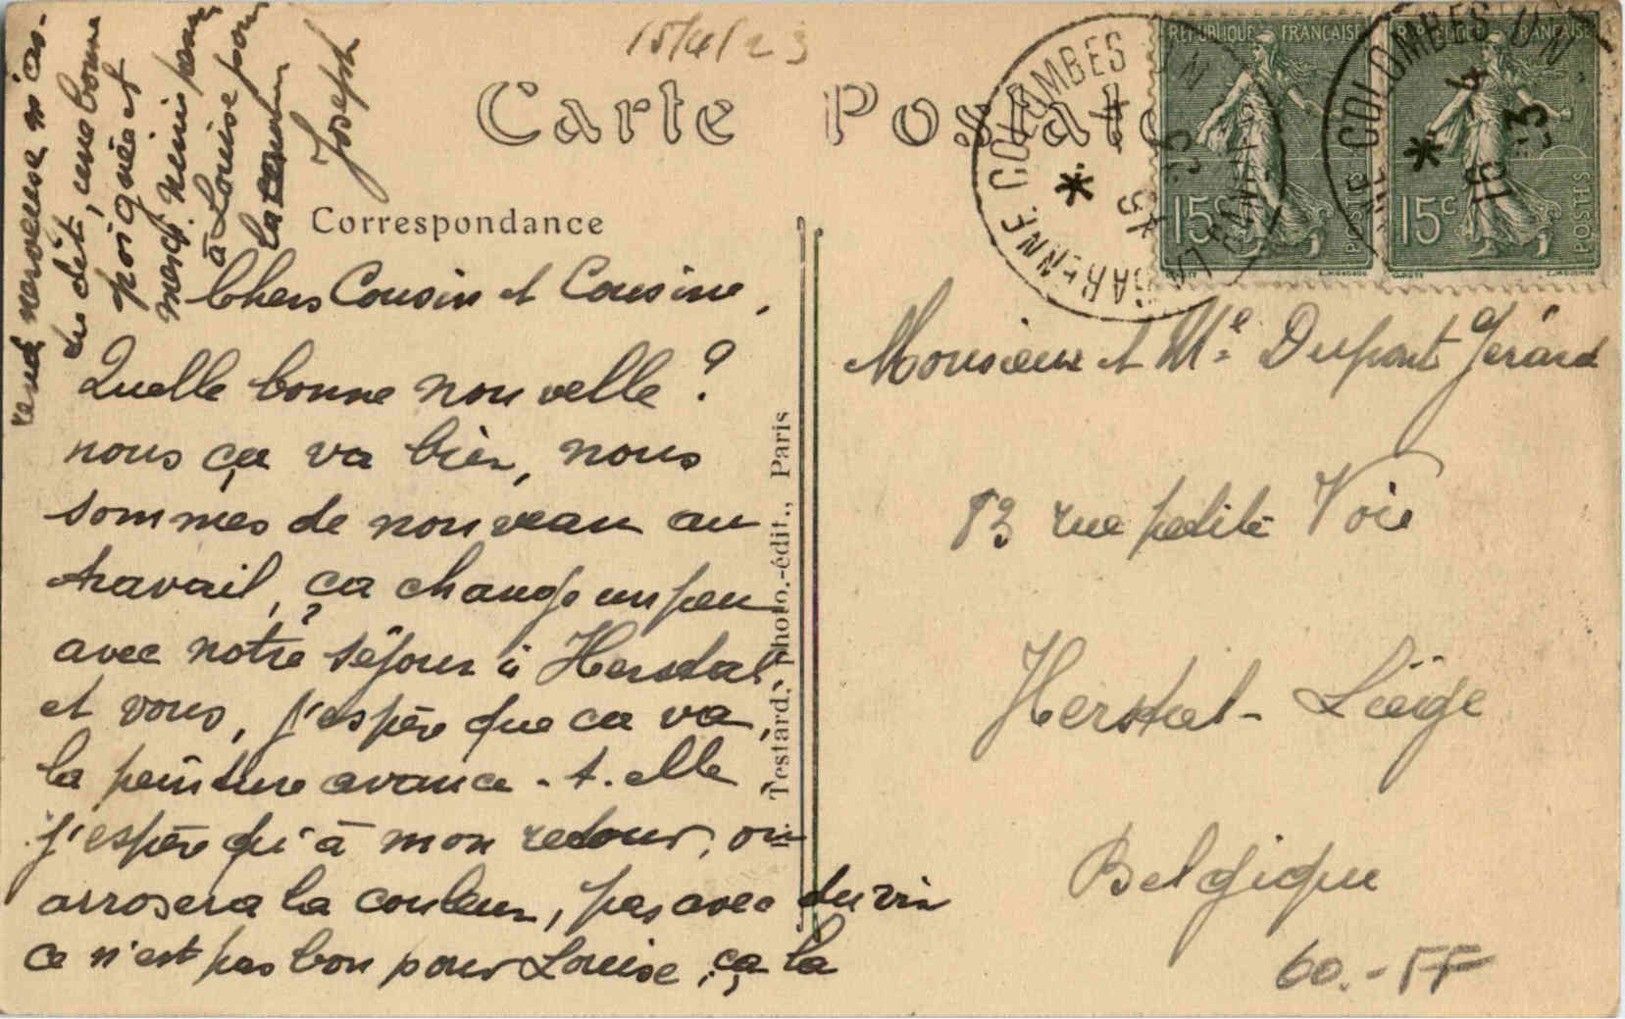 15/4/23
Carte Postale
Correspondance
Chers Cousin et Cousine,
Quelle bonne nouvelle ?
nous ça va bien, nous
sommes de nouveau au
travail, ça change un peu
avec notre séjour à Herstal,
et vous, j'espère que ça va,
la peinture avance-t-elle,
j'espère qu'à mon retour, on
arrosera la couleur, pas avec du vin
ce n'est pas bon pour Louise, ça la
rend nerveuse m'as-
tu dit, une bonne
poignée et
merci. Mimi pour
à Louise pour
la
Joseph
Testard, photo.-édit., Paris
RÉPUBLIQUE FRANÇAISE
15c
POSTES
RÉPUBLIQUE FRANÇAISE
15c
POSTES
LA GARENNE COLOMBES
NE COLOMBES
16 -4
-3
Monsieur et Me Dupont Gérard
83 rue petite Voie
Herstal-Liège
Belgique
60.-FF